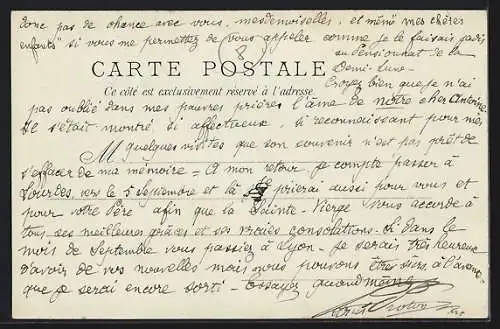 donc pas de chance avec vous, mesdemoiselles, et même mes chères
enfants" si vous me permettez de vous appeler comme je le faisais jadis
8
au Pensionnat de la
Demi-Lune
CARTE POSTALE
Croyez bien que je n'ai
Ce côté est exclusivement réservé à l'adresse.
pas oublié dans mes pauvres prières l'âme de notre cher Antoine
Il s'était montré si affectueux, si reconnaissant pour mes
quelques visites que son souvenir n'est pas prêt de
s'effacer de ma mémoire = A mon retour je compte passer à
Lourdes, vers le 5 Septembre et là je prierai aussi pour vous et
pour votre Père afin que la Sainte-Vierge vous accorde à
tous ses meilleures grâces et ses vraies consolations. Si dans le
mois de Septembre vous passiez à Lyon - je serais très heureux
d'avoir de vos nouvelles mais nous pouvons être sûrs, à l'avance
que je serai encore sorti - Essayez quand même